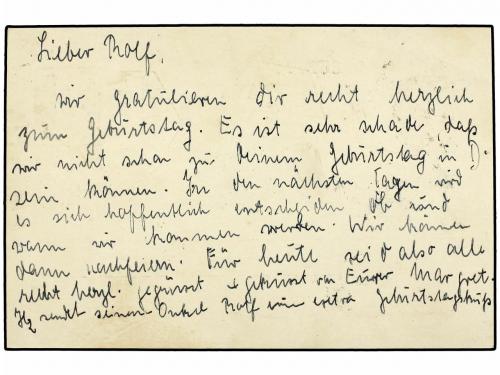 Lieber Rolf,
wir gratulieren dir recht herzlich
zum Geburtstag. Es ist sehr schade, daß
wir nicht schon zu deinem Geburtstag in D.
sein können. In den nächsten Tagen wird
es sich hoffentlich entscheiden ob und
wann wir kommen werden. Wir können
dann nachfeiern. Für heute seid also alle
recht herzl. gegrüsst + geküsst von Eurer Margret.
sendet seinem Onkel Rolf einen extra Geburtstagskuß